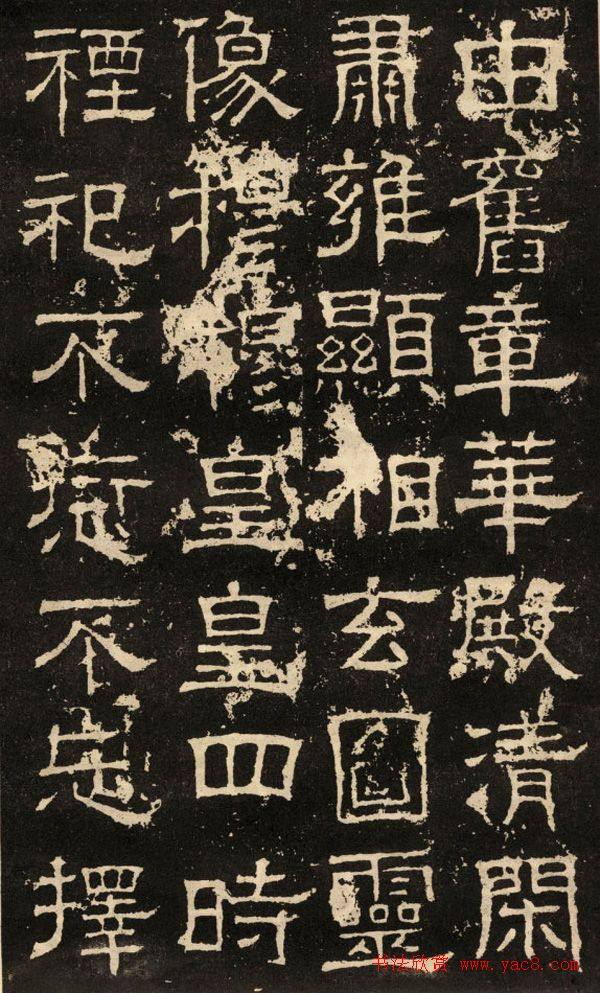 由舊章華殿清閑
肅雍顯相玄圖靈
像穆穆皇皇四時
禋祀不愆不忘擇
书法欣赏 www.yac8.com